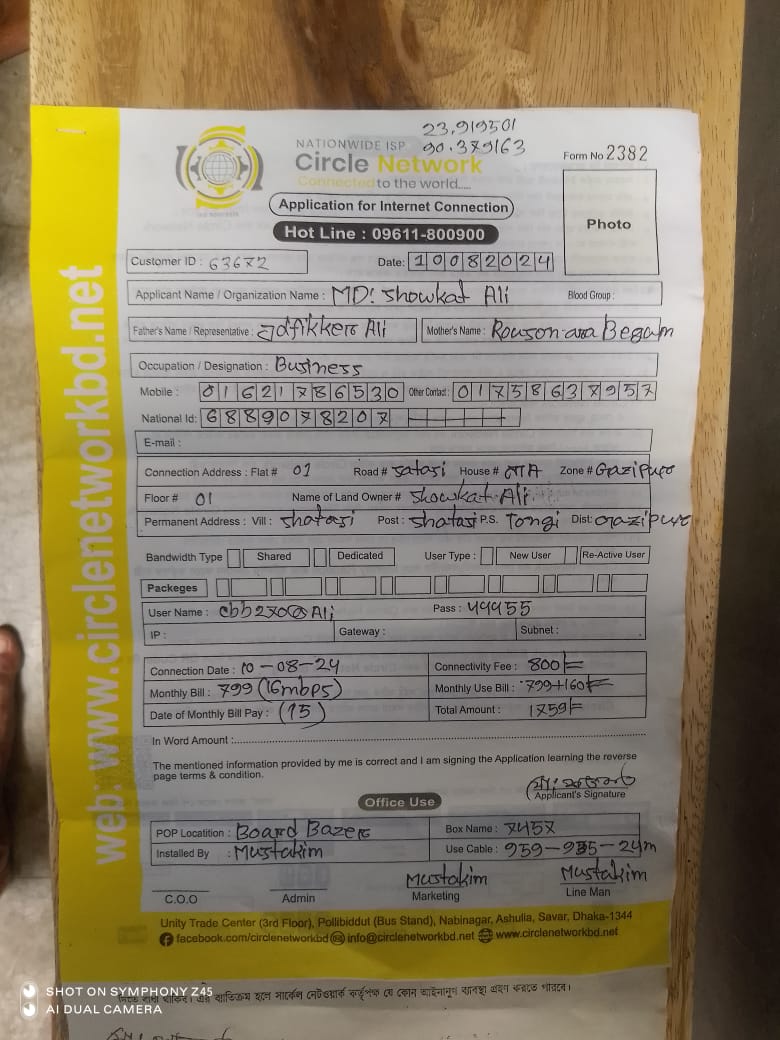 23.919501
90.379163
NATIONWIDE ISP
Circle Network
Connected to the world.....
Form No 2382
Application for Internet Connection
Hot Line : 09611-800900
Photo
Customer ID : 63672
Date: 10082024
Applicant Name / Organization Name : MD: Showkat Ali Blood Group :
Father's Name / Representative : Ali Mother's Name : Rowson-ara Begam
Occupation / Designation : Business
Mobile : 01621786530 Other Contact : 01758637957
National Id: 6889078207
E-mail :
Connection Address : Flat # 01 Road # Satasi House # N/A Zone # Gazipur
Floor # 01 Name of Land Owner # Showkat Ali
Permanent Address : Vill : Shatasi Post : Shatasi P.S. Tongi Dist: Gazipur
Bandwidth Type Shared Dedicated User Type : New User Re-Active User
Packeges
User Name : cbb270@Ali Pass : 44455
IP : Gateway : Subnet :
Connection Date : 10-08-24 Connectivity Fee : 800/=
Monthly Bill : 799 (16mbps) Monthly Use Bill : 799+160/=
Date of Monthly Bill Pay : (15) Total Amount : 1759/=
In Word Amount :
The mentioned information provided by me is correct and I am signing the Application learning the reverse
page terms & condition.
Applicant's Signature
Office Use
POP Locatition : Board Bazer Box Name : 7457
Installed By : Mustakim Use Cable : 959-935-24m
Mustakim Mustakim
C.O.O Admin Marketing Line Man
Unity Trade Center (3rd Floor), Pollibiddut (Bus Stand), Nabinagar, Ashulia, Savar, Dhaka-1344
facebook.com/circlenetworkbd info@circlenetworkbd.net www.circlenetworkbd.net
web: www.circlenetworkbd.net
এর ব্যতিক্রম হলে সার্কেল নেটওয়ার্ক কর্তৃপক্ষ যে কোন আইনানুগ ব্যবস্থা গ্রহণ করতে পারবে।
SHOT ON SYMPHONY Z45
AI DUAL CAMERA